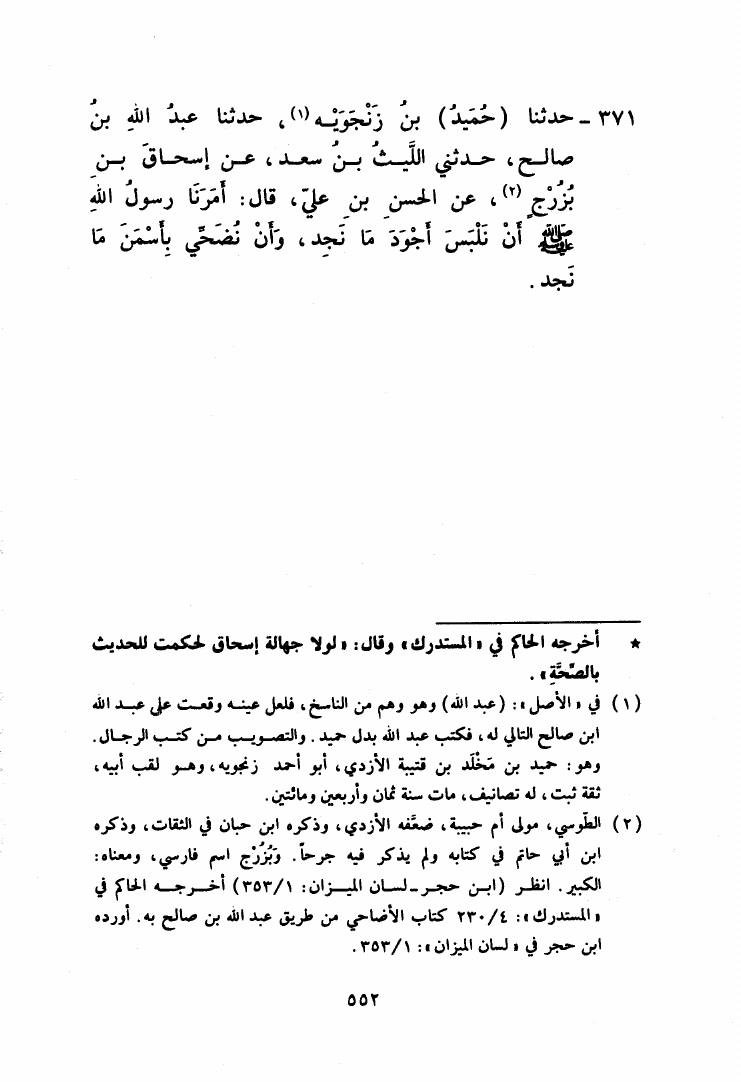 ٣٧١ - حدثنا (حُمَيدُ) بنُ زَنْجَوَيْـه(١)، حدثنا عبدُ اللهِ بنُ
صالـح، حـدثني اللَّيـثُ بـنُ سعـد، عـن إسحـاقَ بـنِ
بُزُرْجٍ(٢)، عن الحسنِ بنِ عليّ، قال: أَمَرَنَا رسولُ اللهِ
ﷺ أَنْ نَلْبَسَ أَجْوَدَ مَا نَجِد، وَأَنْ نُضَحِّي بِأَسْمَنَ مَا
نَجد.
★ أخرجه الحاكم في «المستدرك» وقال: «لولا جهالة إسحاق لحكمت للحديث
بالصِّحَّةِ».
(١) في «الأصل»: (عبد الله) وهو وهم من الناسخ، فلعل عينـه وقعـت على عبـد الله
ابن صالح التالي له، فكتب عبد الله بدل حميد. والتصـويـب مـن كتـب الرجـال.
وهو: حميد بن مَخْلَد بن قتيبة الأزدي، أبو أحمد زنجويه، وهـو لقب أبيه،
ثقة ثبت، له تصانيف، مات سنة ثمان وأربعين ومائتين.
(٢) الطّوسي، مولى أم حبيبة، ضعَّفه الأزدي، وذكره ابن حبان في الثقات، وذكره
ابن أبي حاتم في كتابه ولم يذكر فيه جرحاً. وَبُزُرْج اسم فارسي، ومعناه:
الكبير. انظـر (ابـن حجـر - لسـان الميـزان: ٣٥٣/١) أخـرجـه الحاكم في
«المستدرك»: ٢٣٠/٤ كتاب الأضاحي من طريق عبد الله بن صالح به. أورده
ابن حجر في «لسان الميزان»: ٣٥٣/١.
٥٥٢